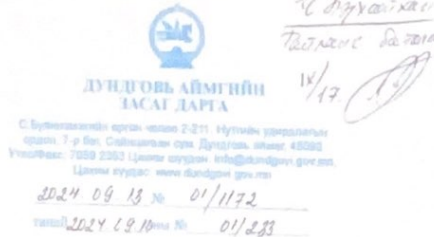 IX/17.
ДУНДГОВЬ АЙМГИЙН
ЗАСАГ ДАРГА
С.Буяннэмэхийн өргөн чөлөө 2-211. Нутгийн удирдлагын
ордон, 7-р баг, Сайнцагаан сум, Дундговь аймаг, 48093
Утас/Факс: 7059 2353 Цахим шуудан: info@dundgovi.gov.mn,
Цахим хуудас: www.dundgovi.gov.mn
2024 09 13 № 01/1172
танай 2024.09.10 ны № 01/233